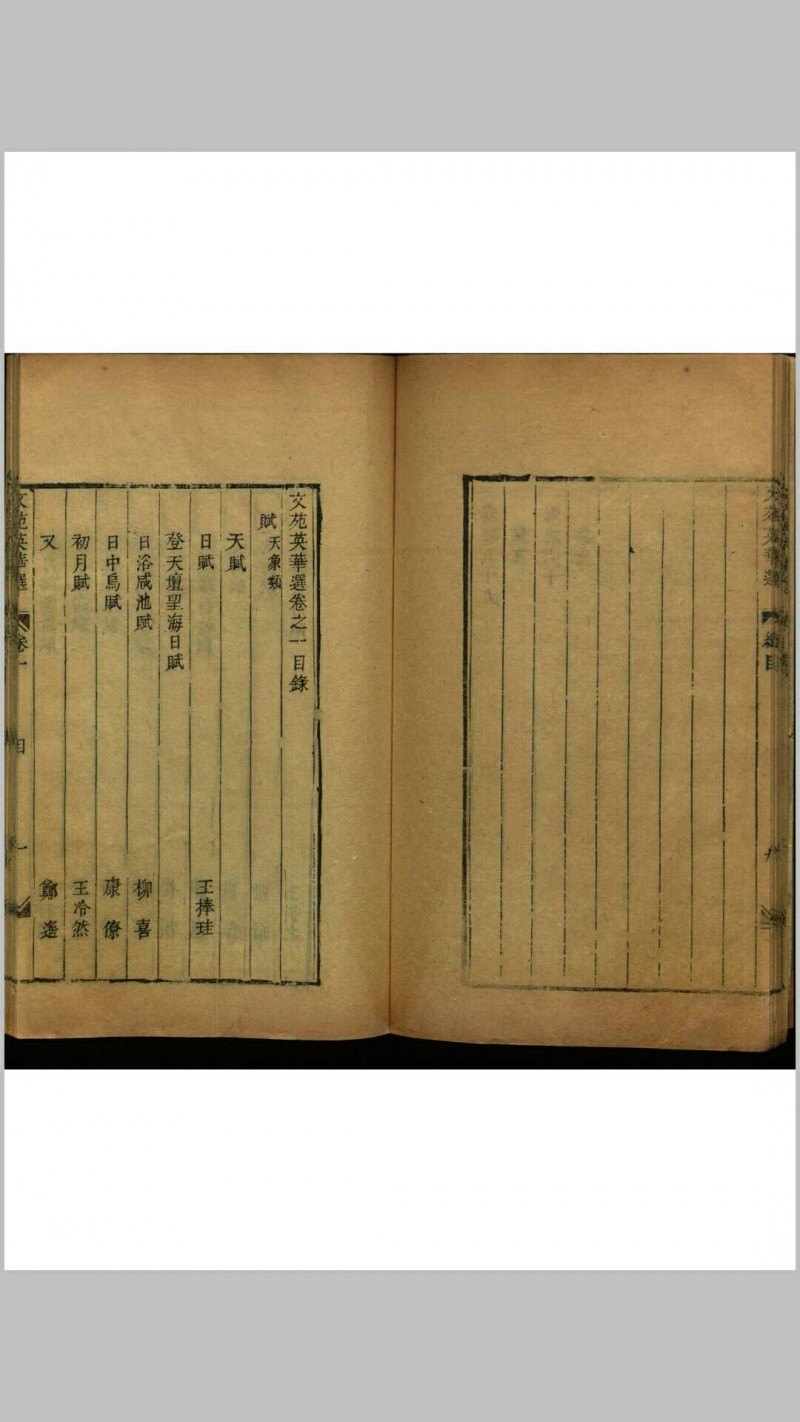 文苑英華選
卷目
九
文苑英華選卷之一目錄
賦 天象類
天賦
日賦 王捧珪
登天壇望海日賦
日浴咸池賦 柳喜
日中烏賦 康僚
初月賦 王泠然
又 鄭遙
文苑英華選
卷一
目
一